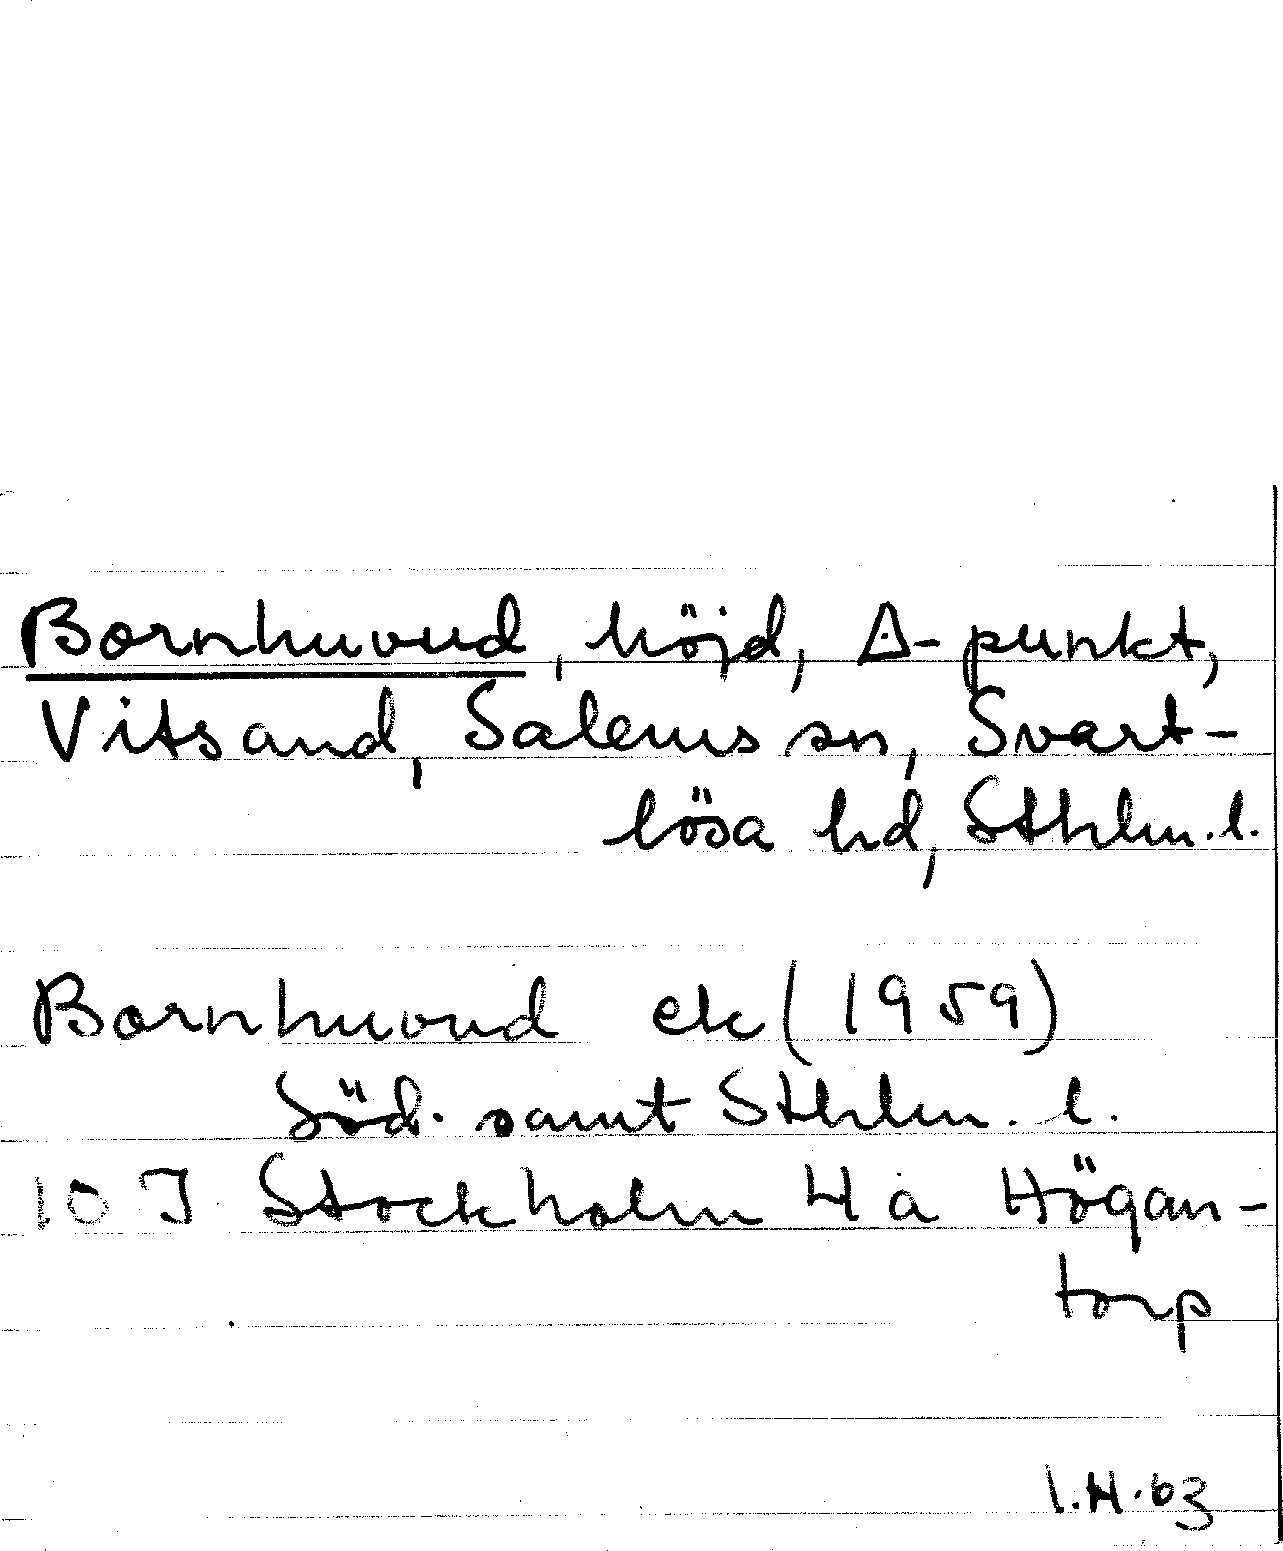 Bornhuvud, höjd, Δ-punkt,
Vitsand, Salems sn, Svart-
lösa hd, Sthlm. l.
Bornhuvud ek (1959)
Söd. samt Sthlm. l.
10 I Stockholm 4 a Högan-
torp
I.H.63